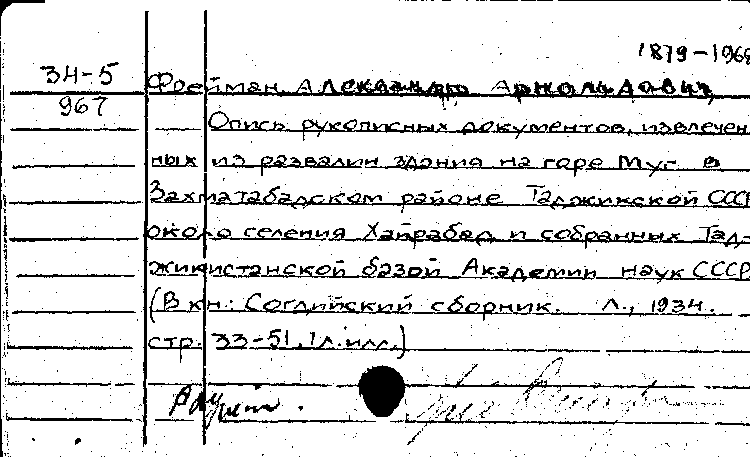 1879-1968
34-5 Фрейман, Александр Арнольдович
967
Опись рукописных документов, извлечен
ных из развалин здания на горе Муг в
Захматабадском районе Таджикской СССР
около селения Хайрабад и собранных Тад-
жикистанской базой Академии наук СССР
(В кн.: Согдийский сборник. Л., 1934.
стр. 33-51, 1 л. илл.)